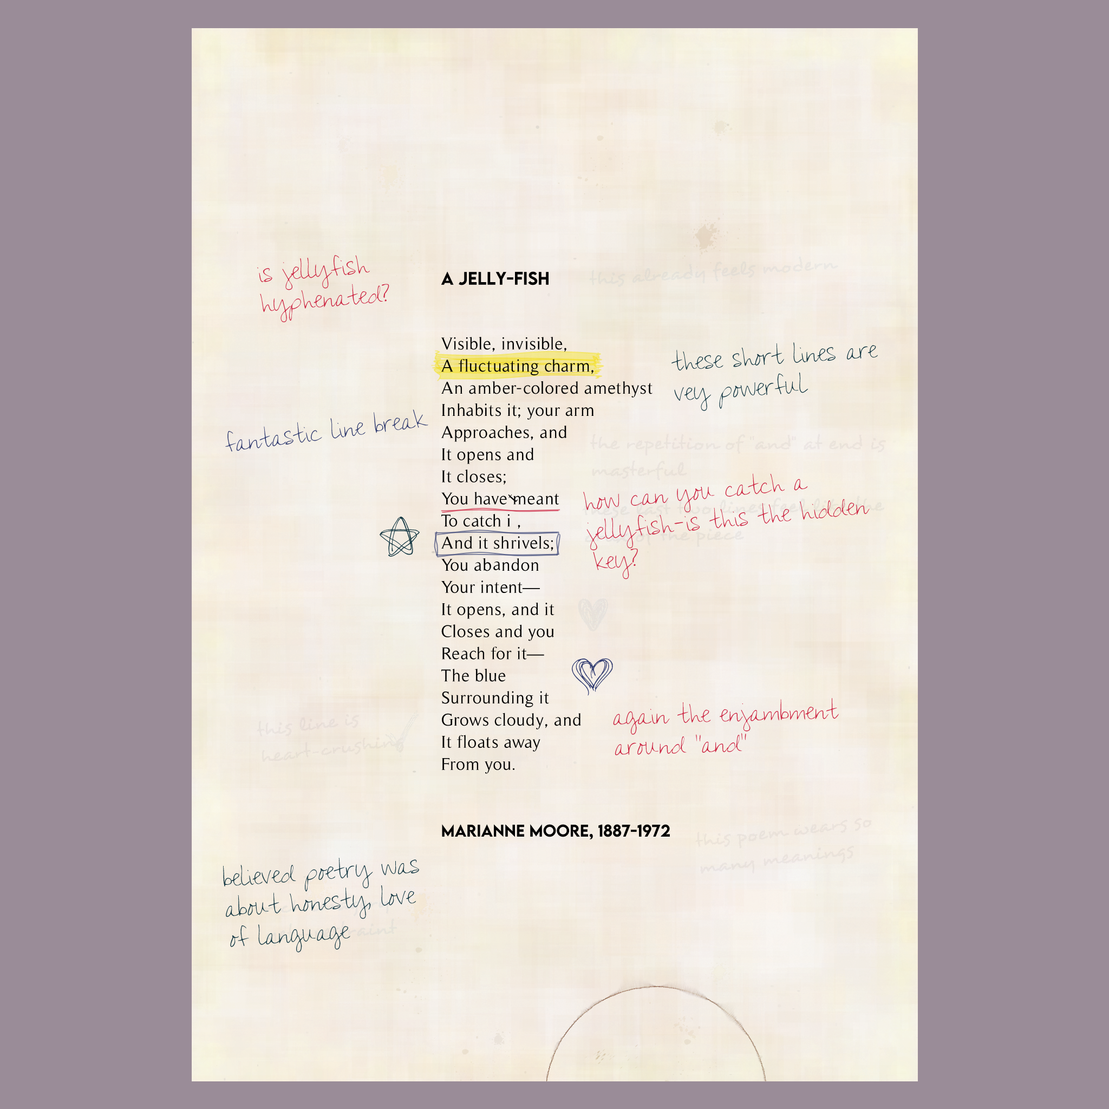 is jellyfish
hyphenated?
A JELLY-FISH
this already feels modern
Visible, invisible,
A fluctuating charm,
An amber-colored amethyst
Inhabits it; your arm
Approaches, and
It opens and
It closes;
You have meant
To catch i ,
And it shrivels;
You abandon
Your intent—
It opens, and it
Closes and you
Reach for it—
The blue
Surrounding it
Grows cloudy, and
It floats away
From you.
these short lines are
vey powerful
fantastic line break
the repetition of "and" at end is
masterful
how can you catch a
jellyfish-is this the hidden
key?
the piece
this line is
heart-crushing
again the enjambment
around "and"
MARIANNE MOORE, 1887-1972
this poem wears so
many meanings
believed poetry was
about honesty, love
of language